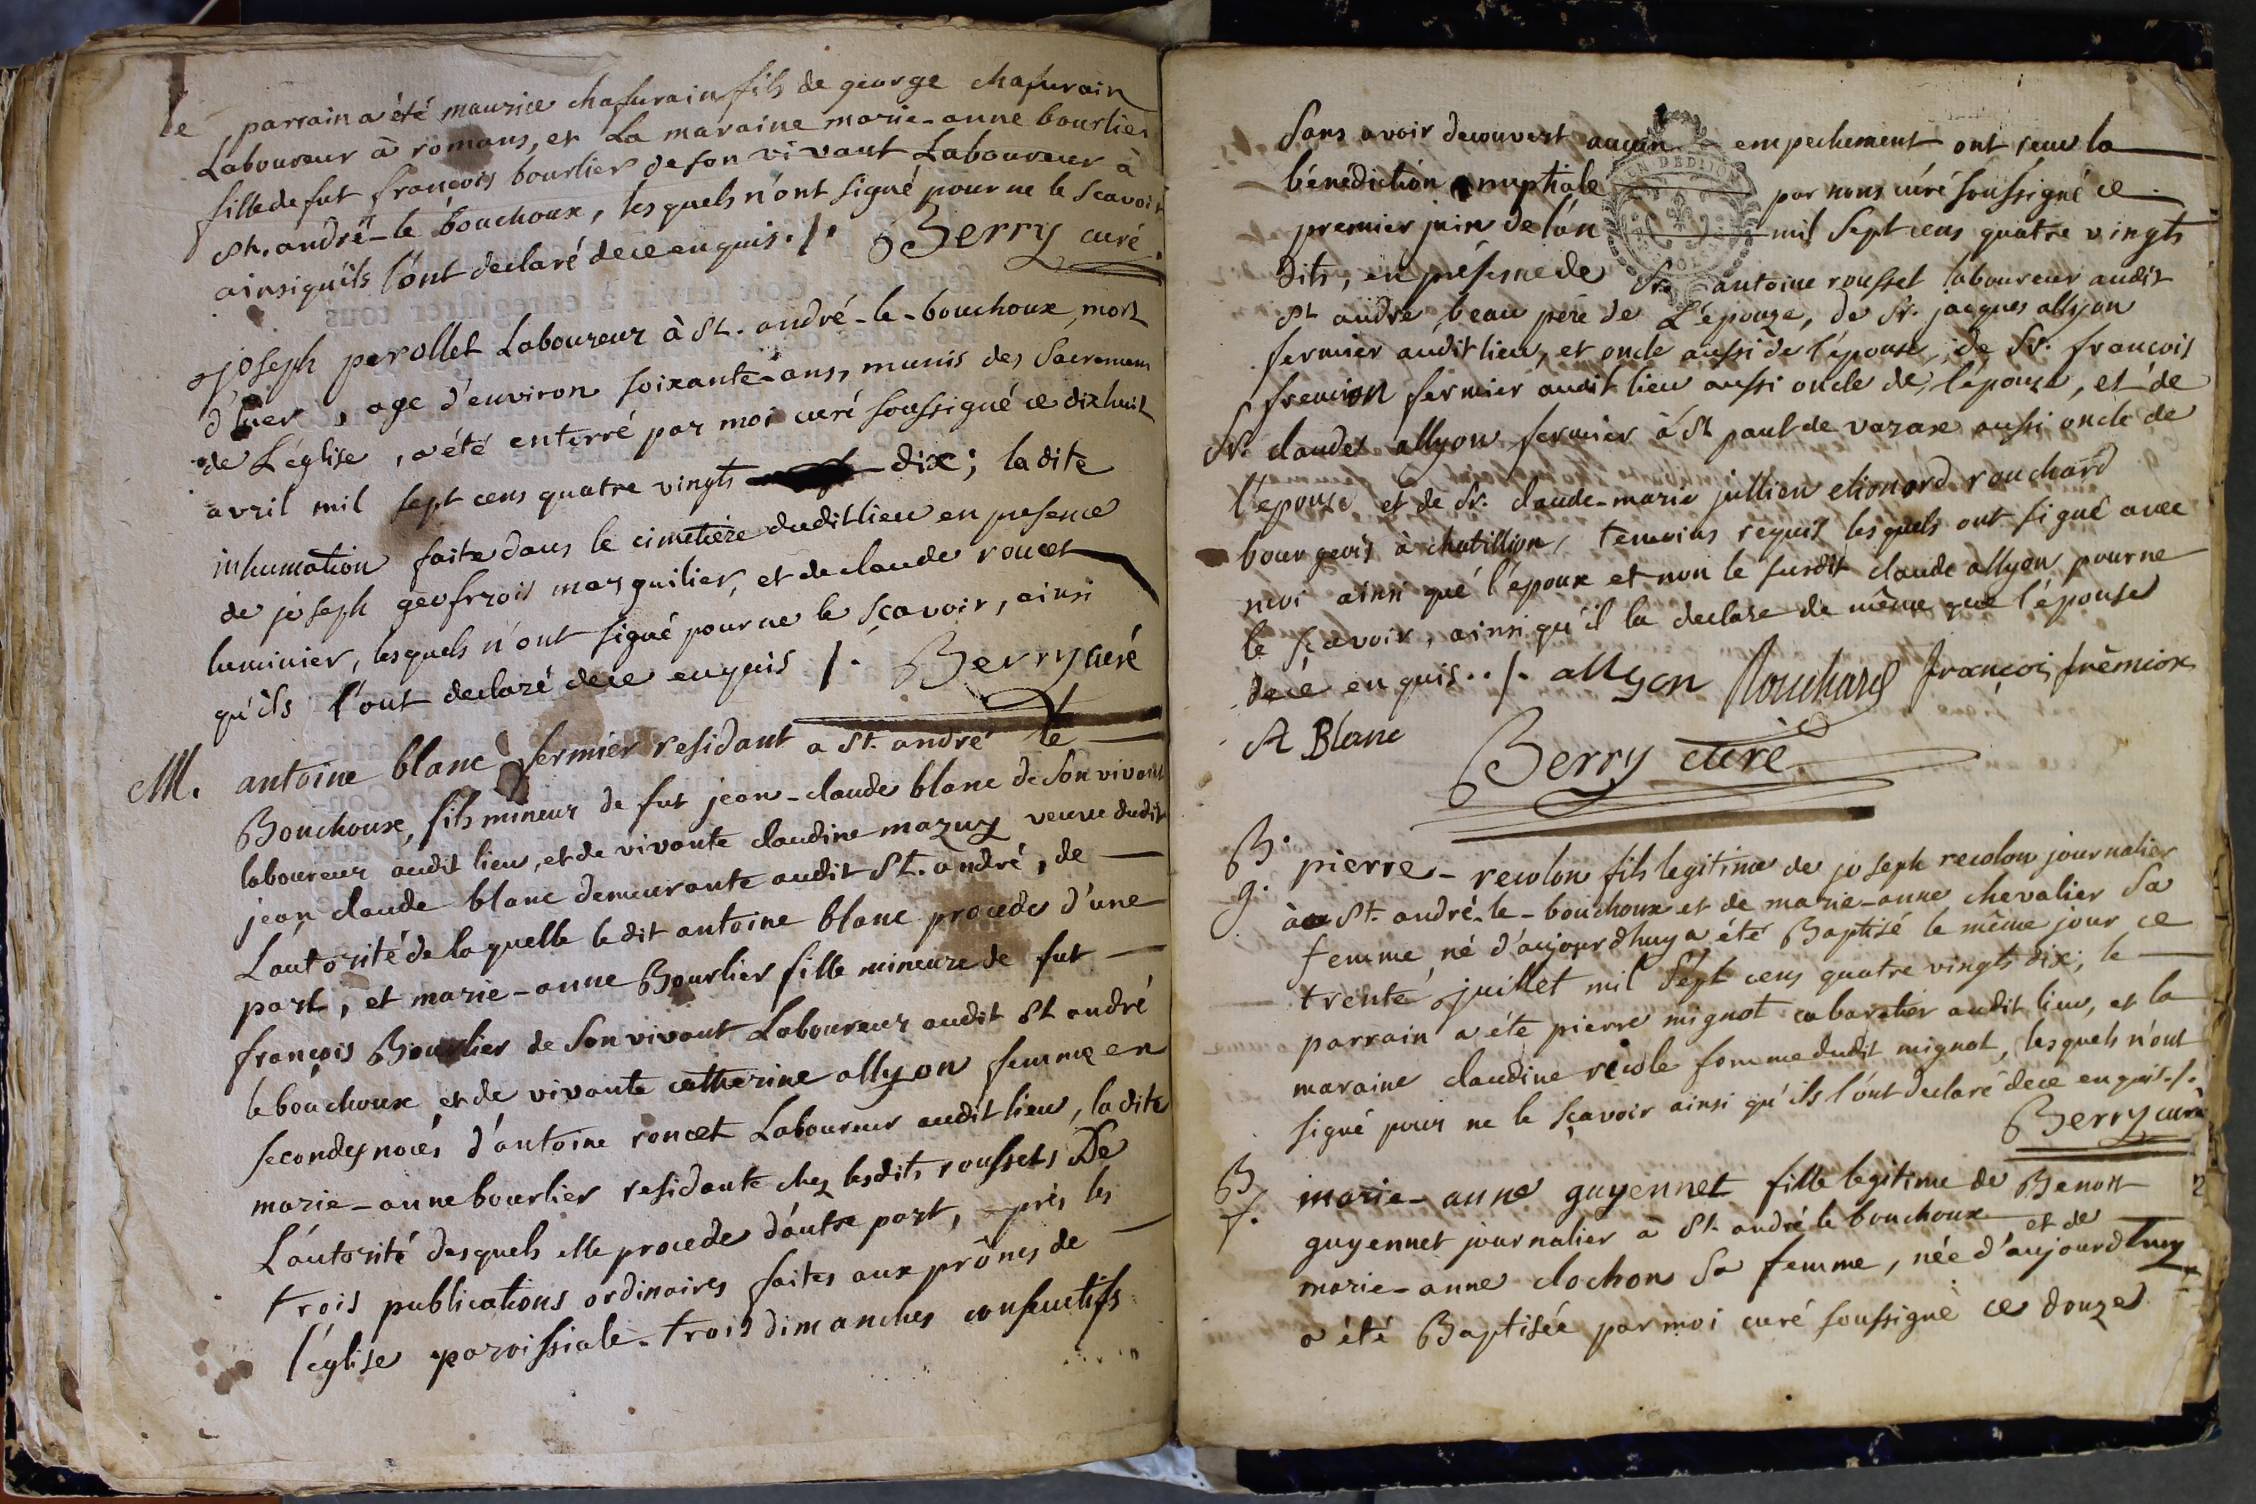 le parrain a été maurice chafurain fils de george chafurain
Laboureur à romans, et La maraine marie-anne bourlier
fille de fut françois bourlier de son vivant Laboureur à
St. andré-le bouchoux, lesquels n'ont signé pour ne le scavoir
ainsi qu'ils l'ont declaré de ce enquis ./. Berry curé.
joseph perollet Laboureur à St. andré-le-bouchoux, mort
d'hier, age d'environ soixante-ans, munis des Sacremens
de L'église, a été enterré par moi curé soussigné ce dixhuit
avril mil sept cens quatre vingts dix; la dite
inhumation faite dans le cimetière dudit lieu en presence
de joseph geofrois marguilier, et de claude roncet
luminier, lesquels n'ont signé pour ne le sçavoir, ainsi
qu'ils l'ont declaré de ce enquis /. Berry curé
M. antoine blanc fermier residant a St. andré le
Bouchoux, fils mineur de fut jean-claude blanc de son vivant
laboureur audit lieu, et de vivante claudine mazuy veuve dudit
jean claude blanc demeurante audit St. andré, de
L'autorité de laquelle ledit antoine blanc procede d'une
part, et marie-anne Bourlier fille mineure de fut
françois Bourlier de son vivant Laboureur audit St andré
le bouchoux et de vivante catherine allyon femme en
secondes noces d'antoine roncet Laboureur audit lieu, la dite
marie-anne bourlier residante chez lesdits roussets De
L'autorité desquels elle procede d'autre part, après les
trois publications ordinaires faites aux prônes de
l'église paroissiale trois dimanches consecutifs
sans avoir decouvert aucun empechement ont reçu la
bénédiction nuptiale par nous curé soussigné ce
premier juin de l'an mil Sept cens quatre vingts
dits, en présence de Sr. antoine rousset laboureur audit
St andré, beau père de L'épouze, de Sr. jacques allyon
fermier audit lieu, et oncle aussi de l'épouse, de Sr. françois
fremion fermier audit lieu aussi oncle de l'épouze, et de
Sr. claude allyon fermier à St paul de varax aussi oncle de
l'epouse et de Sr. claude-marie jullien elionord rouchard
bourgeois à chatillion, temoins requis lesquels ont signé avec
moi ainsi que l'époux et non le susdit claude allyon pour ne
le sçavoir, ainsi qu'il la declare de même que l'épouse
de ce enquis ../. allyon Rouchard françois frêmion
A Blanc Berry curé
B. pierre-recolon fils legitime de joseph recolon journalier
g. à St. andré-le-bouchoux et de marie-anne chevalier Sa
femme, né d'aujourdhuy a été Baptisé le même jour ce
trente juillet mil Sept cens quatre vingts dix; le
parrain a éte pierre mignot cabaratier audit lieu, et la
maraine claudine recole femme dudit mignot, lesquels n'ont
signé pour ne le sçavoir ainsi qu'ils l'ont declaré de ce enquis./.
Berry curé
B. marie-anne guyennet fille legitime de Benoit
f. guyennet journalier à St. andré le bouchoux et de
marie-anne clochon Sa femme, née d'aujourdhuy
a été Baptisée par moi curé soussigné ce douze